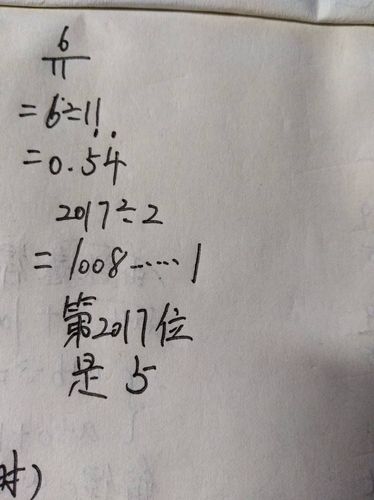 6/11
=6÷11
=0.5̇4̇
2017÷2
=1008……1
第2017位
是 5
时)